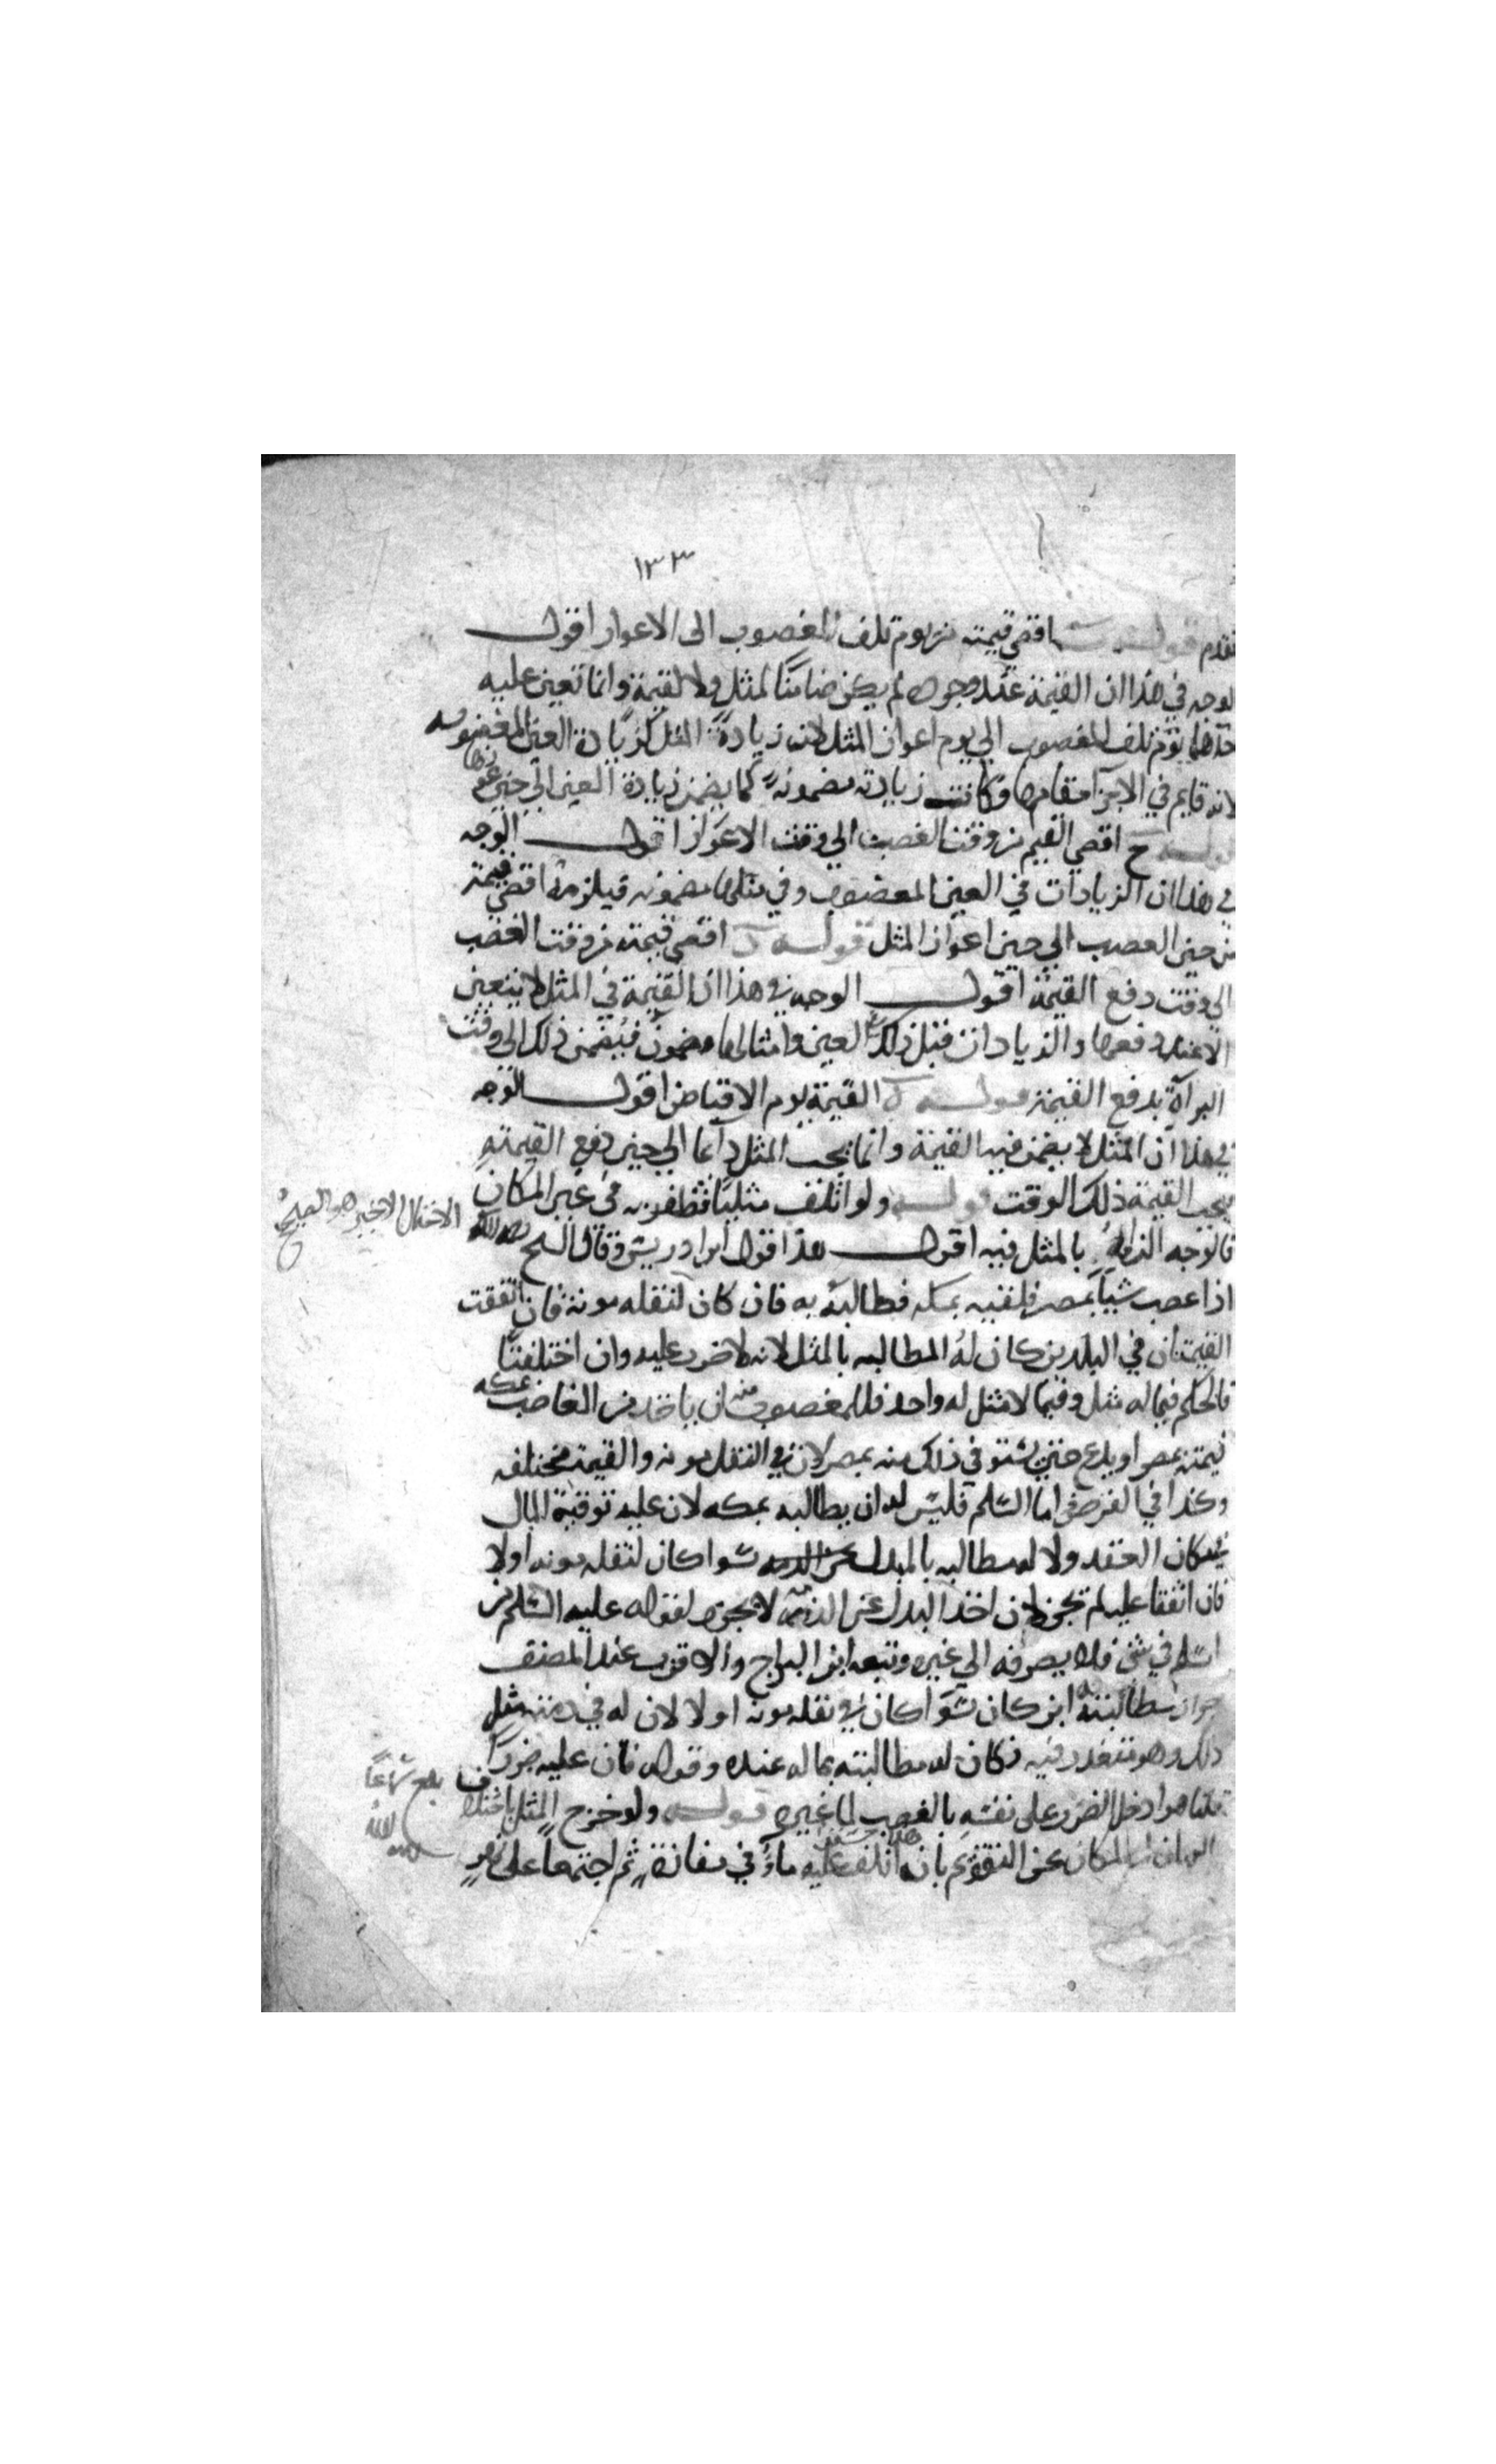 ١٣٣
تقدم قوله ب اقصى قيمته من يوم تلف المغصوب الى الاعواز اقول
الوجه في هذا ان القيمة عند وجوده لم يكن ضامنا لمثل ولا لقيمة وانما تعين عليه
احدهما يوم تلف المغصوب الى يوم اعواز المثل لان زيادة المثل كزيادة العين المغصوبه
لانه قايم في الاجزا مقامها وكانت زيادته مضمونة كما يضمن زيادة العين الى حين
قوله ح اقصى القيم من وقت الغصب الى وقت الاعواز اقول الوجه
في هذا ان الزيادات في العين المغصوب وفي مثلها مضمونه فيلزمه اقصى قيمته
من حين الغصب الى حين اعواز المثل قوله د اقصى قيمته من وقت الغصب
الى وقت دفع القيمة اقول الوجه في هذا ان القيمة في المثل لا يتعين
الا عند دفعها والزيادات قبل ذلك في العين وامثالها مضمون فيضمن ذلك الى وقت
البرآة بدفع القيمة قوله ه القيمة يوم الاقباض اقول الوجه
في هذا ان المثل لا يضمن فيه القيمة وانما يجب المثل دآيما الى حين دفع القيمة
يجب القيمة ذلك الوقت قوله ولو اتلف مثليا فظفر به في غير المكان
الاحتمال الاخير هو الصحيح
فالوجه الزامه بالمثل فيه اقول هذا قول ابن ادريس وقال الشيخ رحمه الله
اذا غصب شيئا بمصر فلقيه بمكه فطالبه به فان كان لنقله مونة فان اتفقت
القيمتان في البلدين كان له المطالبه بالمثل لانه لا ضرر عليه وان اختلفتا
فالحكم فيما له مثل وفيما لا مثل له واحد فللمغصوب منه ان ياخذ من الغاصب بمكه
قيمته بمصر او يدع حتى يستوفي ذلك منه بمصر لان في النقل مونه والقيمة مختلفه
وكذا في القرض اما السلم فليس له ان يطالبه بمكه لان عليه توفية المال
في مكان العقد ولا له مطالبه بالبدل سوا كان لنقله مونه او لا
فان اتفقا عليه لم يجز لان اخذ البدل عن الذمة لا يجوز لقوله عليه السلم من
اسلم في شئ فلا يصرفه الى غيره وتبعه ابن البراج والاقرب عند المصنف
جواز مطالبته به اين كان سوآ كان في نقله مونه او لا لان له في ذمته مثل
ذلك وهو متعدد فيه فكان له مطالبته بماله عنده وقوله فان عليه ضررا
قلنا هو ادخل الضرر على نفسه بالغصب لما غيره قوله ولو خرج المثل باختلاف
بلغ سماعا
الزمان او المكان عن التقويم بان اتلف عليه ماء في مفازة ثم اجتمعا على نهر